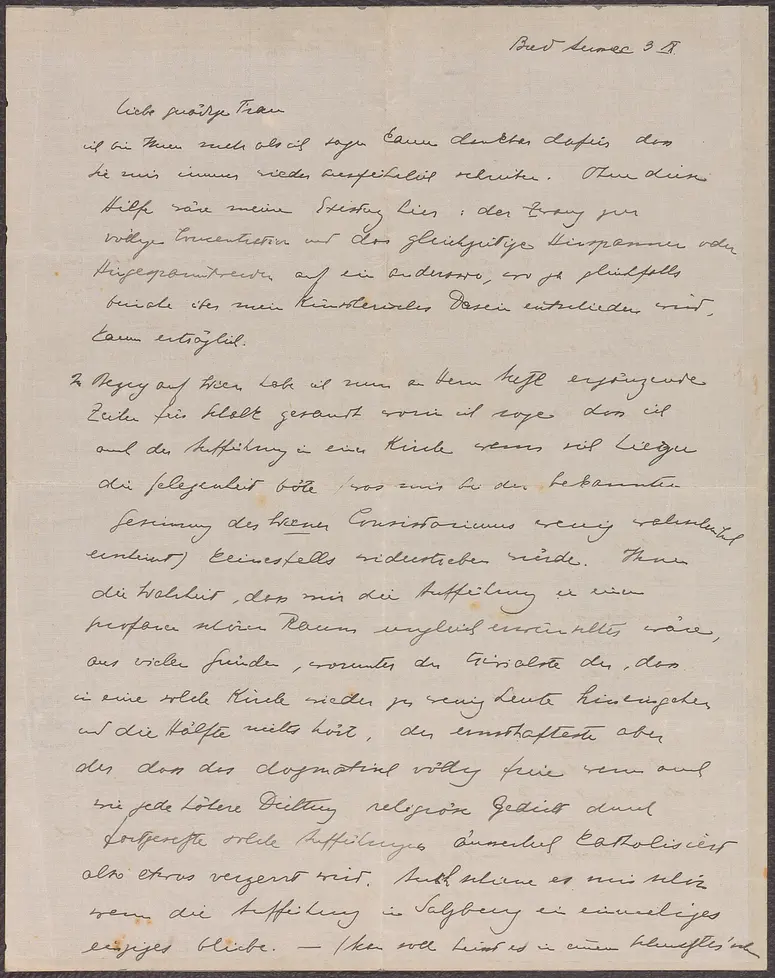 Bad Aussee 3 IX
Liebe gnädige Frau
ich bin Ihnen mehr als ich sagen kann dankbar dafür dass
Sie mir immer wieder ausführlich schreiben. Ohne diese
Hilfe wäre meine Existenz hier: der Zwang zur
völligen Concentration und das gleichzeitige Hinspannen oder
auf ein anderswo, wo ja gleichfalls
beinahe über mein künstlerisches Dasein entschieden wird,
kaum erträglich.
In Bezug auf Wien habe ich nun an Herrn ergänzende
Zeilen für Schalk gesandt worin ich sage dass ich
auch der Aufführung in einer Kirche wenn sich hiezu
die Gelegenheit böte (was mir bei der bekannten
Gesinnung des Wiener Consistoriums wenig wahrscheinlich
erscheint) keinesfalls widerstreben würde. Ihnen
die Wahrheit, dass mir die Aufführung in einem
profanen schönen Raum ungleich erwünschter wäre,
aus vielen Gründen, worunter der trivialste der, dass
in eine solche Kirche wieder zu wenig Leute hineingehen
und die Hälfte nichts hört, der ernsthafteste aber
der dass das dogmatisch völlig freie wenn auch
wie jede höhere Dichtung religiöse Gedicht durch
fortgesetzte solche Aufführungen äusserlich katholisiert
also etwas verzerrt wird. Auch schiene es mir schön
wenn die Aufführung in Salzburg ein einmaliges
einziges bliebe. — (Man soll heisst es in einem